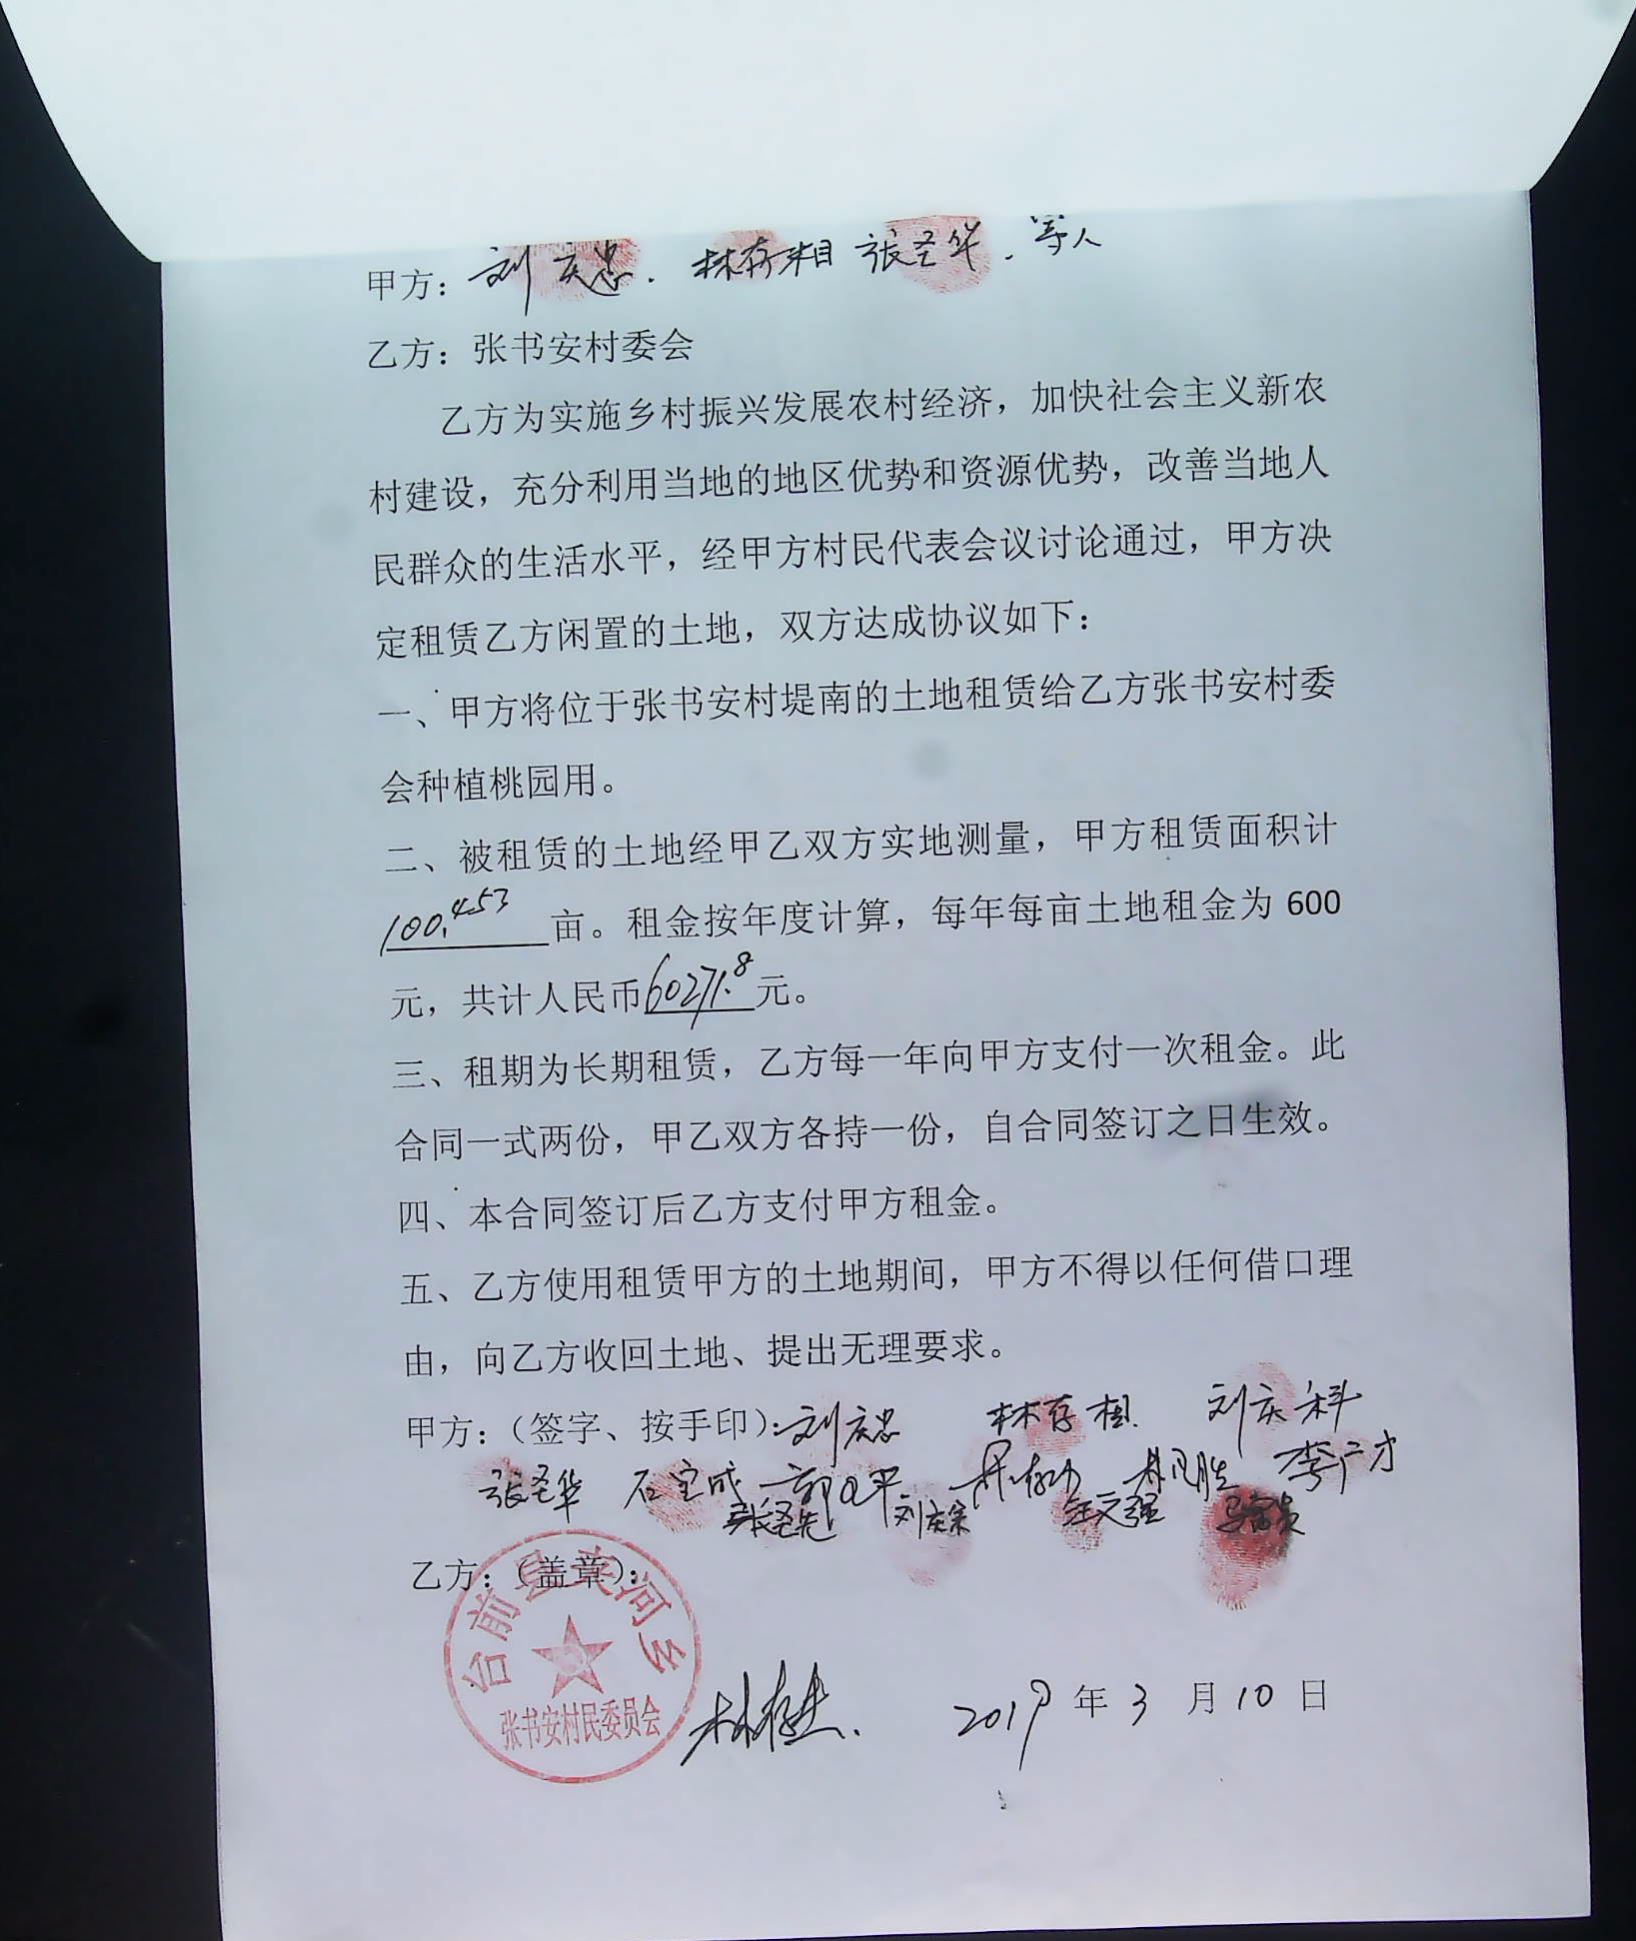 甲方：刘庆忠．林存相 张圣华．等人
乙方：张书安村委会
乙方为实施乡村振兴发展农村经济，加快社会主义新农
村建设，充分利用当地的地区优势和资源优势，改善当地人
民群众的生活水平，经甲方村民代表会议讨论通过，甲方决
定租赁乙方闲置的土地，双方达成协议如下：
一、甲方将位于张书安村堤南的土地租赁给乙方张书安村委
会种植桃园用。
二、被租赁的土地经甲乙双方实地测量，甲方租赁面积计
100.453亩。租金按年度计算，每年每亩土地租金为 600
元，共计人民币60271.8元。
三、租期为长期租赁，乙方每一年向甲方支付一次租金。此
合同一式两份，甲乙双方各持一份，自合同签订之日生效。
四、本合同签订后乙方支付甲方租金。
五、乙方使用租赁甲方的土地期间，甲方不得以任何借口理
由，向乙方收回土地、提出无理要求。
甲方：（签字、按手印）：刘庆忠 林存相 刘庆科
张圣华 石宝成 李广才
张圣先 刘庆宋 汪文强
乙方：（盖章）：
台前县夹河乡
张书安村民委员会
林存杰． 2019年3月10日